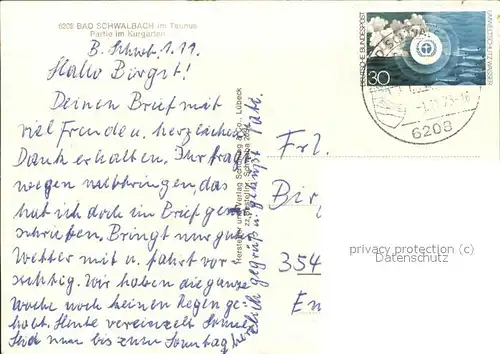 6208 BAD SCHWALBACH im Taunus
Partie im Kurgarten
B. Schwb. 1.11.
Hallo Birgit!
Deinen Brief mit
viel Freude u. herzlichen
Dank erhalten. Ihr fragt
wegen mitbringen, das
hab ich doch im Brief ge
schrieben. Bringt nur gutes
Wetter mit u. fahrt vor-
sichtig. Wir haben die ganze
Woche noch keinen Regen ge-
habt. Heute vereinzelt
Seid nun bis zum Sonntag
herzlich gegrüßt u. geküßt
Hersteller und Verlag Schöning & Co., Lübeck
DEUTSCHE BUNDESPOST
UMWELTSCHUTZ: WASSER
30
-1.11.73-16
6208
Frl.
Bir
354
privacy protection (c)
Datenschutz